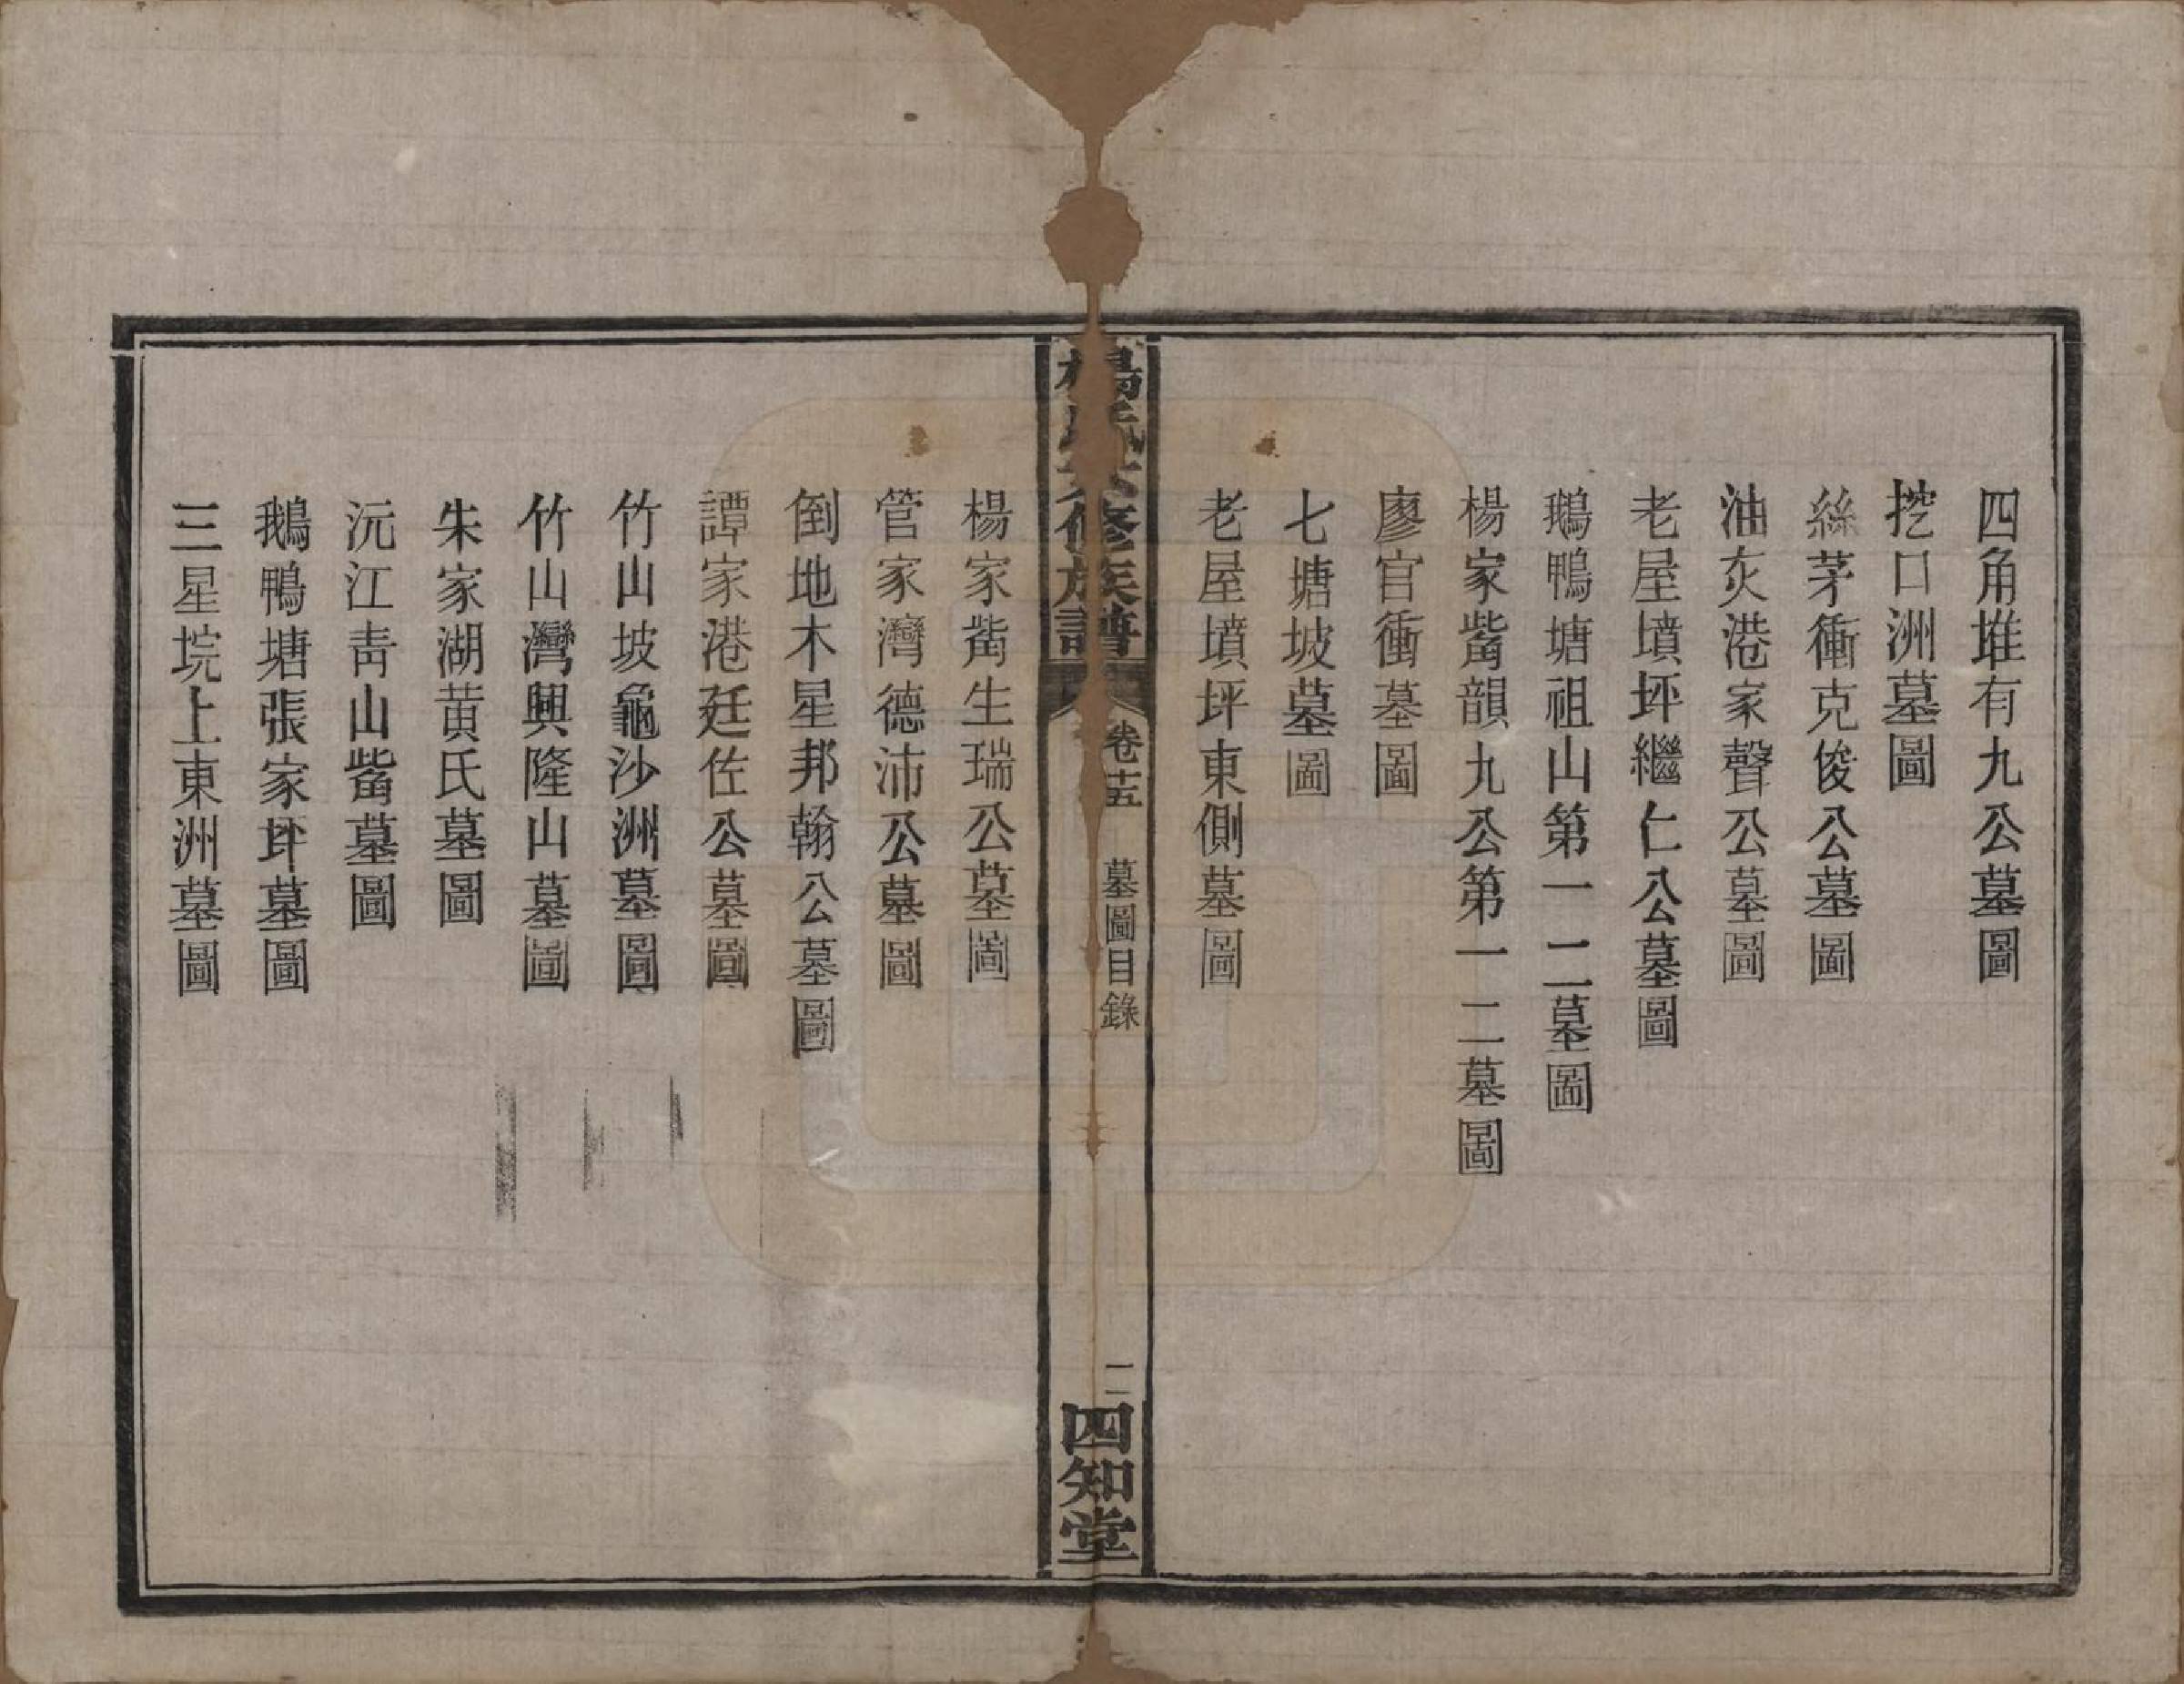 四角堆有九公墓圖
挖口洲墓圖
絲茅衝克俊公墓圖
油灰港家聲公墓圖
老屋墳坪繼仁公墓圖
鵝鴨塘祖山第一二墓圖
楊家觜韻九公第一二墓圖
廖官衝墓圖
七塘坡墓圖
老屋墳坪東側墓圖
楊氏六修族譜
卷十五 墓圖目錄
二
四知堂
楊家觜生瑞公墓圖
管家灣德沛公墓圖
倒地木星邦翰公墓圖
譚家港廷佐公墓圖
竹山坡龜沙洲墓圖
竹山灣興隆山墓圖
朱家湖黄氏墓圖
沅江靑山觜墓圖
鵝鴨塘張家坪墓圖
三星垸上東洲墓圖